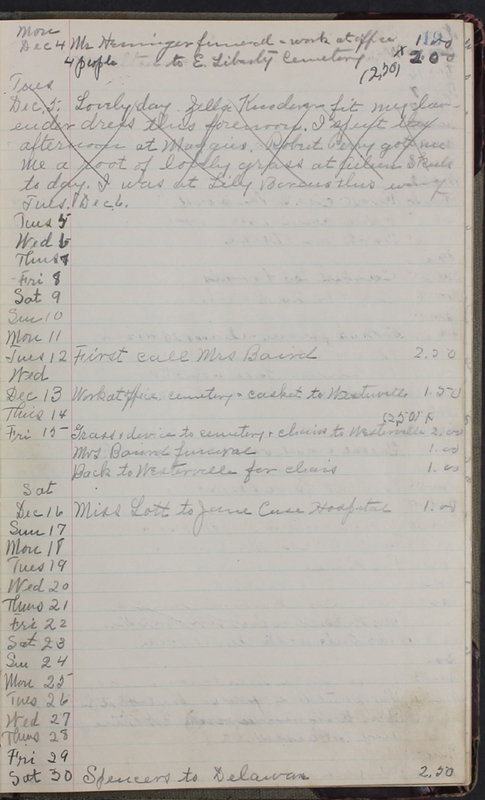 Mon
Dec 4 Mr Heminger funeral & work at office 1.50
4 people to E. Liberty Cemetery x 2.00
(2,50)
Tues
Dec 5. Lovely day. Zella fit my lav-
ender dress this forenoon. I spent the
afternoon at Maggies. Robert Perry got me
me a root of lovely grass at
to day. I was at Lilly this
Tues. Dec 6.
Tues 5
Wed 6
Thurs 7
Fri 8
Sat 9
Sun 10
Mon 11
Tues 12 First call Mrs Baird 2.50
Wed
Dec 13 Work at office, cemetery & casket to Westerville 1.50
Thurs 14
(2,50) x
Fri 15 Grass & device to cemetery & chairs to Westerville 2.00
Mrs Baird funeral 1.00
Back to Westerville for chairs 1.00
Sat
Dec 16 Miss Lott to Jane Case Hospital 1.00
Sun 17
Mon 18
Tues 19
Wed 20
Thurs 21
Fri 22
Sat 23
Sun 24
Mon 25
Tues 26
Wed 27
Thurs 28
Fri 29
Sat 30 Spencers to Delawar 2.50